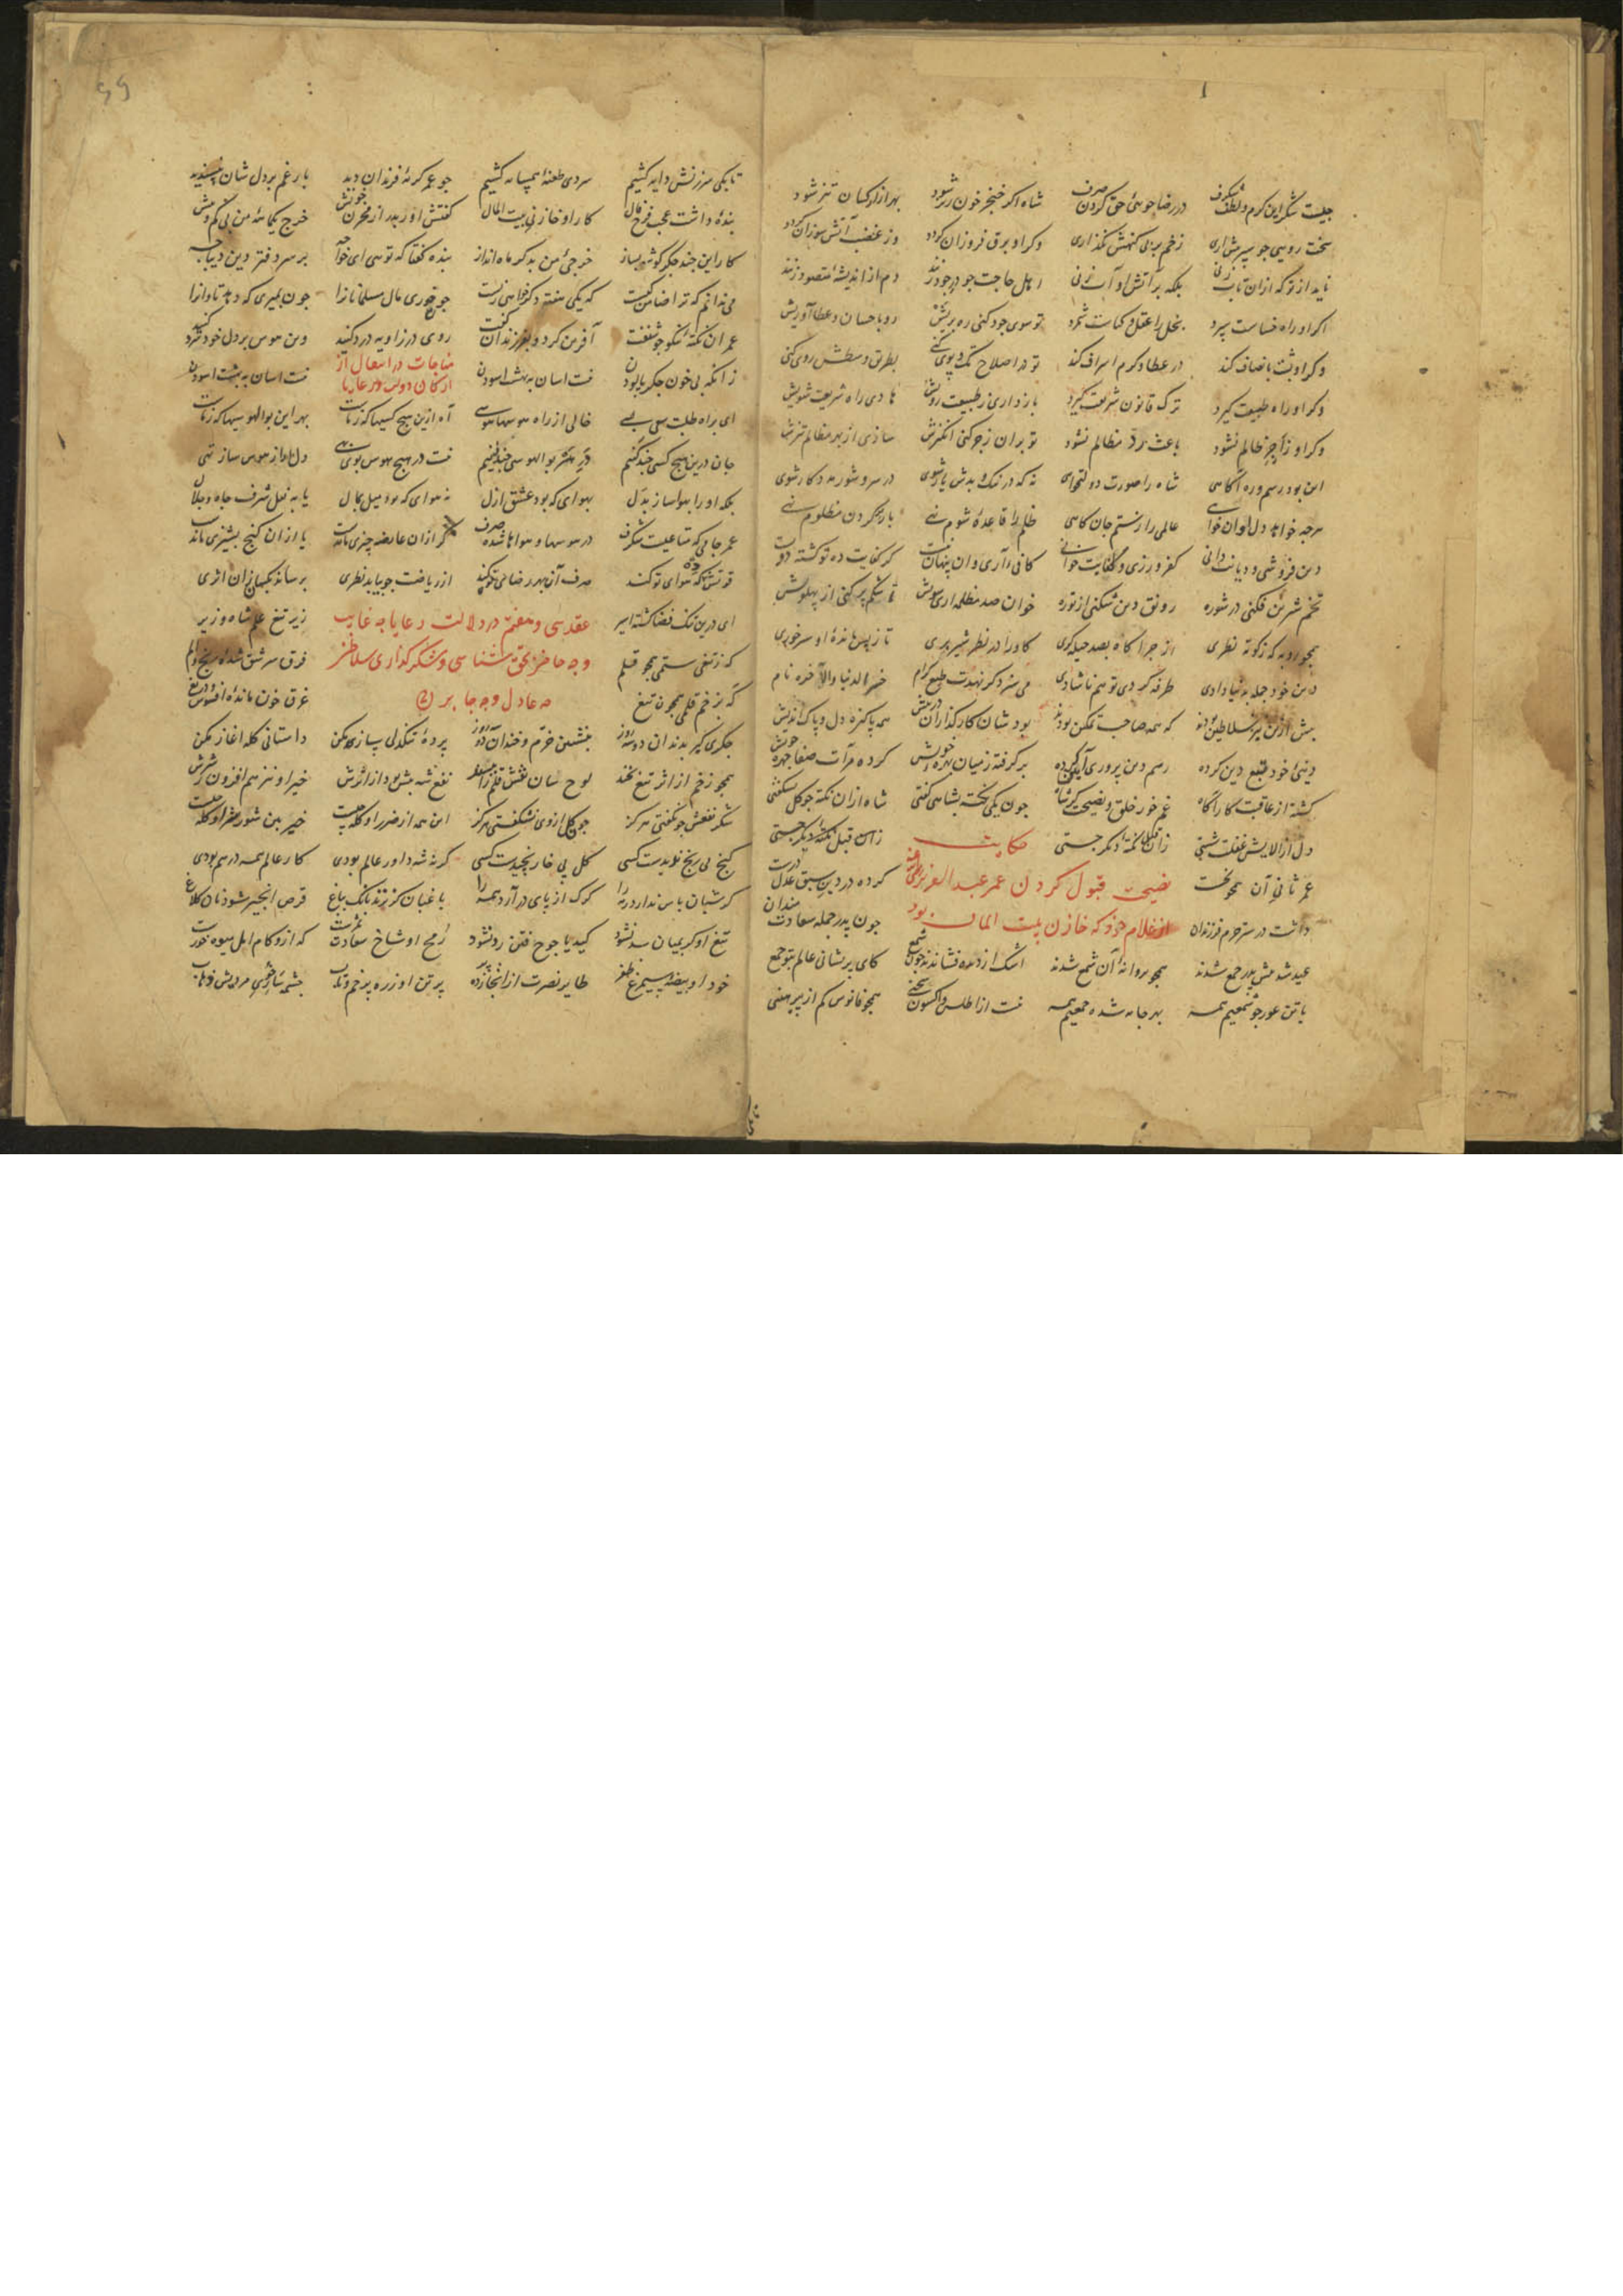 چیست شکر این کرم و لطف شکرف در رضاجوئی حق کردن صرف شاه اکر خنجر خون ریز شود بهر آزار کسان تیز شود
سخت رویی چو سپر پیش آری زخم بر بی کنهش نکذاری وکر او برق فروزان کردد وز غضب آتش سوزان کردد
ناید از تو که ازان تاب زنی بلکه بر آتش او آب زنی اهل حاجت چو در جود زنند دم از اندیشهٔ مقصود زنند
اکر او راه خساست سپرد بخل را عقل و کیاست شمرد تو سوی جود کنی ره بریش رو باحسان و عطا آوریش
وکر او پشت بانصاف کند در عطا و کرم اسراف کند تو در اصلاح تک و پوی کنی بطریق وسطش روی کنی
وکر او راه طبیعت کیرد ترک قانون شریعت کیرد باز داری ز طبیعت رویش هادی راه شریعت شویش
وکر او زاجر ظالم نشود باعث رد مظالم نشود تو بران زجر کنی انکیزش سازی از بهر مظالم تیزش
این بود رسم و ره آکاهی شاه را صورت دولتخواهی نه که در نیک و بدش یار شوی در سر و شور مددکار شوی
هرچه خواهد دل او آن خواهی عالمی را ز ستم جان کاهی ظلم را قاعدهٔ شوم نهی بار بر کردن مظلوم نهی
دین فروشی و دیانت دانی کفر ورزی و کفایت خوانی کافی آری و ان پنهانت کز کفایت ده تو کشته دوات
تخم شرین فکنی در شوره رونق دین شکنی از توره خوان صد مظلمه آری سویش تا شکم پر کنی از پهلویش
همچو روبه که ز کوته نظری از چراکاه بصد حیله کری کاو را در نظر شیر بری تا ز پس ماندهٔ او سیر خوری
دین خود جمله بدنیا دادی طرفه کر دین تو هم ناشادی می سزد کر نهدت طبع کرام خسر الدنیا والآخره نام
پیش ازین نیز سلاطین بودند که همه صاحب تمکین بودند بود شان کارکذاران در پیش همه پاکیزه دل و پاک اندیش
دینی خود تبع دین کرده رسم دین پروری آیین کرده برکرفته ز میان بهرهٔ خویش کرده مرآت صفا چهرهٔ خویش
کشته از عاقبت کار آکاه غم خور خلق و نصیحت کر شاه چون یکی نکته بشاهی کفتی شاه ازان نکته چو کل بشکفتی
دل از آلایش غفلت شستی زان نکته دیکر جستی حکایت زان قبل نکتهٔ دیکر جستی
عمر ثانی آن همچو نخست نصیحت قبول کردن عمر عبد العزیز کرده در دین سبق عدل درست
داشت در ستر حرم فرزندان از غلام خود که خازن بیت المال بود چون پدر جمله سعادت مندان
عید شد پیش پدر جمع شدند همچو پروانه آن شمع شدند اشک از دیده فشاندند چو شمع کای پریشانی عالم بتو جمع
با تن عور چو شمعیم همه بهر جامه شده جمعیم همه نیست از اطلس و اکسون سخنی همچو فانوس کم از پیرهنی
تا بکی سرزنش دایه کشیم سردی طعنهٔ همسایه کشیم چو عمر کریهٔ فرزندان دید بار غم بر دل شان نپسندید
بندهٔ داشت عجب فرخ فال کار او خازنی بیت المال کفتش آور بدر از مخزن خویش خرج یکماههٔ من بی کم و بیش
کار این چند جکر کوشه بساز خرجی من بدکر ماه انداز بنده کفتا که تویی ای خواجه بر سر دفتر دین دیباجه
می ندانم که ترا ضامن کیست که یکی هفته دکر خواهی زیست چو خوری مال مسلمانان را چون بمیری که دهد تاوان را
عمر ان نکتهٔ نیکو چو شنفت آفرین کرد و بفرزندان کفت روی در زاویهٔ درد کنید وین هوس بر دل خود سرد کنید
زانکه بی خون جکر پالودن نیست اسان به بهشت اسودن مناجات در انتقال از ارکان دولت در رعایا نیست اسان به بهشت اسودن
ای براه طلبت سعی بسی خالی از راه هوسها هوسی آه ازین هیچ کسیها که مراست بهر این بوالهوسیها که مراست
جان درین هیچ کسی چند کنیم دیر و مکر بوالهوسی چند کنیم نیست در هیچ هوس بوی بهی دل ما را ز هوس ساز تهی
بلکه او را بهوا ساز بدل بهوای که بود عشق ازل نه هوای که بود میل بمال یا به نعل شرف جاه و جلال
عمر جامی که متاعیست شکرف در هوسها و هواها شده صرف کر ازان عارضه چیزی ماندست یا ازان کنج پشیزی ماندست
قوتش ده که هوای تو کند صرف آن بهر رضای تو کند از ریاضت چو بیابد نظری برساند بکسان زان اثری
ای درین تنک فضا کشته اسیر عقد سی و هفتم در دلالت رعایا چه غایب زیر تیغ علم شاه و زیر
که ز تیغی ستمی همچو قلم و چه حاضر بحق شناسی و شکرکذاری سلاطین فرق سر شق شدهٔ رنج و الم
که بزخم قلمی همچون تیغ چه عادل و چه جابر غرق خون ماندهٔ افسوس و دریغ
جکری کیر بدندان دو سه روز بنشین خرم و خندان دو سه روز پردهٔ تنکدلی ساز مکن داستانی کله آغاز مکن
همچو زخم از اثر تیغ مخند لوح سان نقش قلم را مپسند نفع شه بیش بود از اثرش خیر او نیز هم افزون ز شرش
شکر نفعش چو نکفتی هرکز چون کل از وی نشکفتی هرکز این همه از ضرر او کله چیست خیر بین شور و شر او کله چیست
کنج بی رنج ندیدست کسی کل بی خار نچیدست کسی کر نه شه داور عالم بودی کار عالم همه درهم بودی
کر شبان پاس ندارد رمه را کرک از پای درآرد همه را باغبان کر نزند بانک بباغ قرص انجیر شود نان کلاغ
تیغ او کر بمیان سد نشود کید یاجوج فتن رد نشود رمح او شاخ سعادت ثمرست که ازو کام امل میوه خورست
خود او بیضهٔ سیمرغ ظفر طایر نصرت ازانجا زده پر بر تن او زره پر خم و تاب چشمه ساریست مر پیش در آب